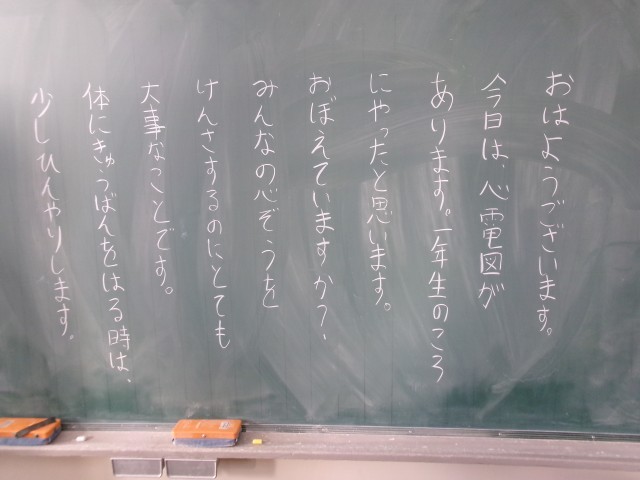 おはようございます。
今日は、心電図が
あります。一年生のころ
にやったと思います。
おぼえていますか？、
みんなの心ぞうを
けんさするのにとても
大事なことです。
体にきゅうばんをはる時は、
少しひんやりします。